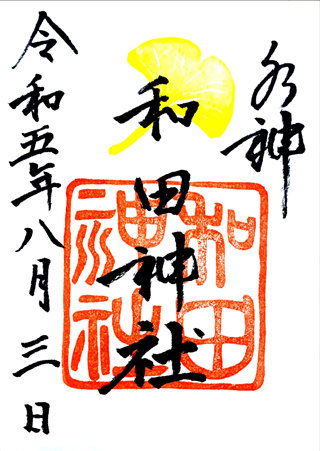 水神
和田神社
令和五年八月三日
和田
神社